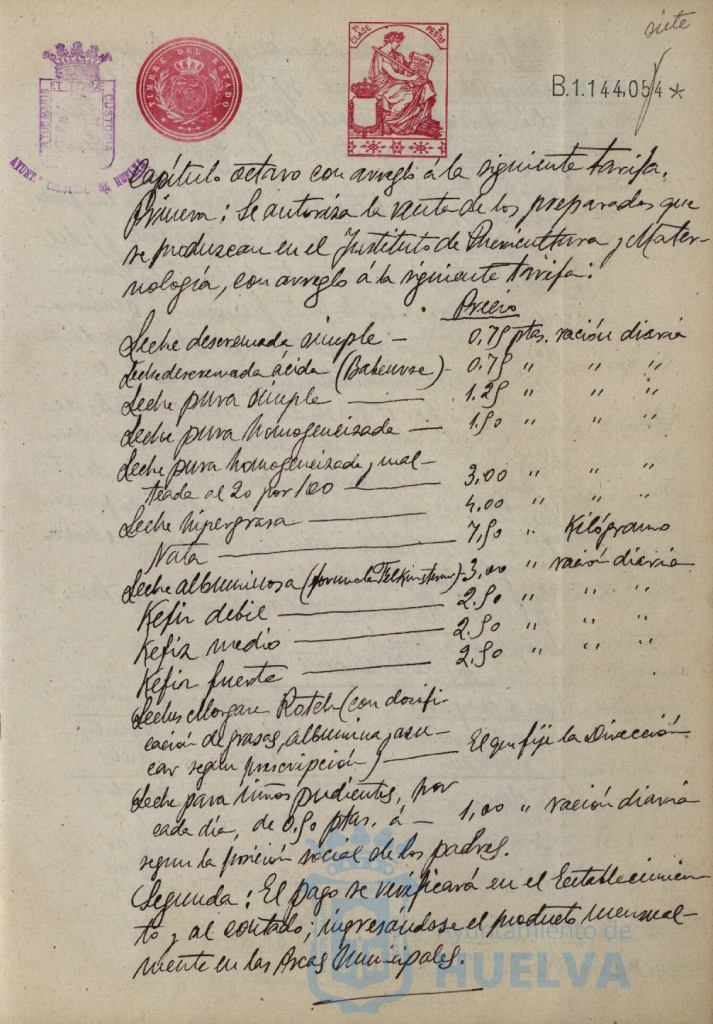 siete
TIMBRE DEL ESTADO
7ª CLASE 2 PESTAS
B.1.144.054 *
ET TERRÆ
CUSTODIA
AYUNT. HUELVA
Capítulo octavo con arreglo á la siguiente tarifa.
Primera: Se autoriza la venta de los preparados que
se produzcan en el Instituto de Puericultura y Mater-
nología, con arreglo á la siguiente tarifa:
Precio
Leche descremada simple — 0.75 ptas. ración diaria
Leche descremada ácida (Babeurre) - 0.75 " " "
Leche pura simple — 1.25 " " "
Leche pura homogeneizada — 1.50 " " "
Leche pura homogeneizada y mal-
teada al 20 por 100 — 3,00 " " "
Leche hipergrasa — 4.00 " " "
Nata — 7,50 " Kilógramo
Leche albuminosa (formula Felkinstein) - 3,00 " ración diaria
Kefir debil — 2.50 " " "
Kefir medio — 2.50 " " "
Kefir fuerte — 2.50 " " "
Leches Morgan Rotch (con dosifi-
cación de grasas, albumina y azu-
car segun prescripción) — El que fije la Dirección
Leche para niños pudientes, por
cada día, de 0,50 ptas. á — 1,00 " ración diaria
segun la posición social de los padres.
Segunda: El pago se verificará en el Establecimien-
to y al contado; ingresándose el producto mensual-
mente en las Arcas Municipales.
Ayuntamiento de
HUELVA